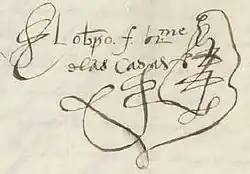 el obpo. f. brme
de las casas